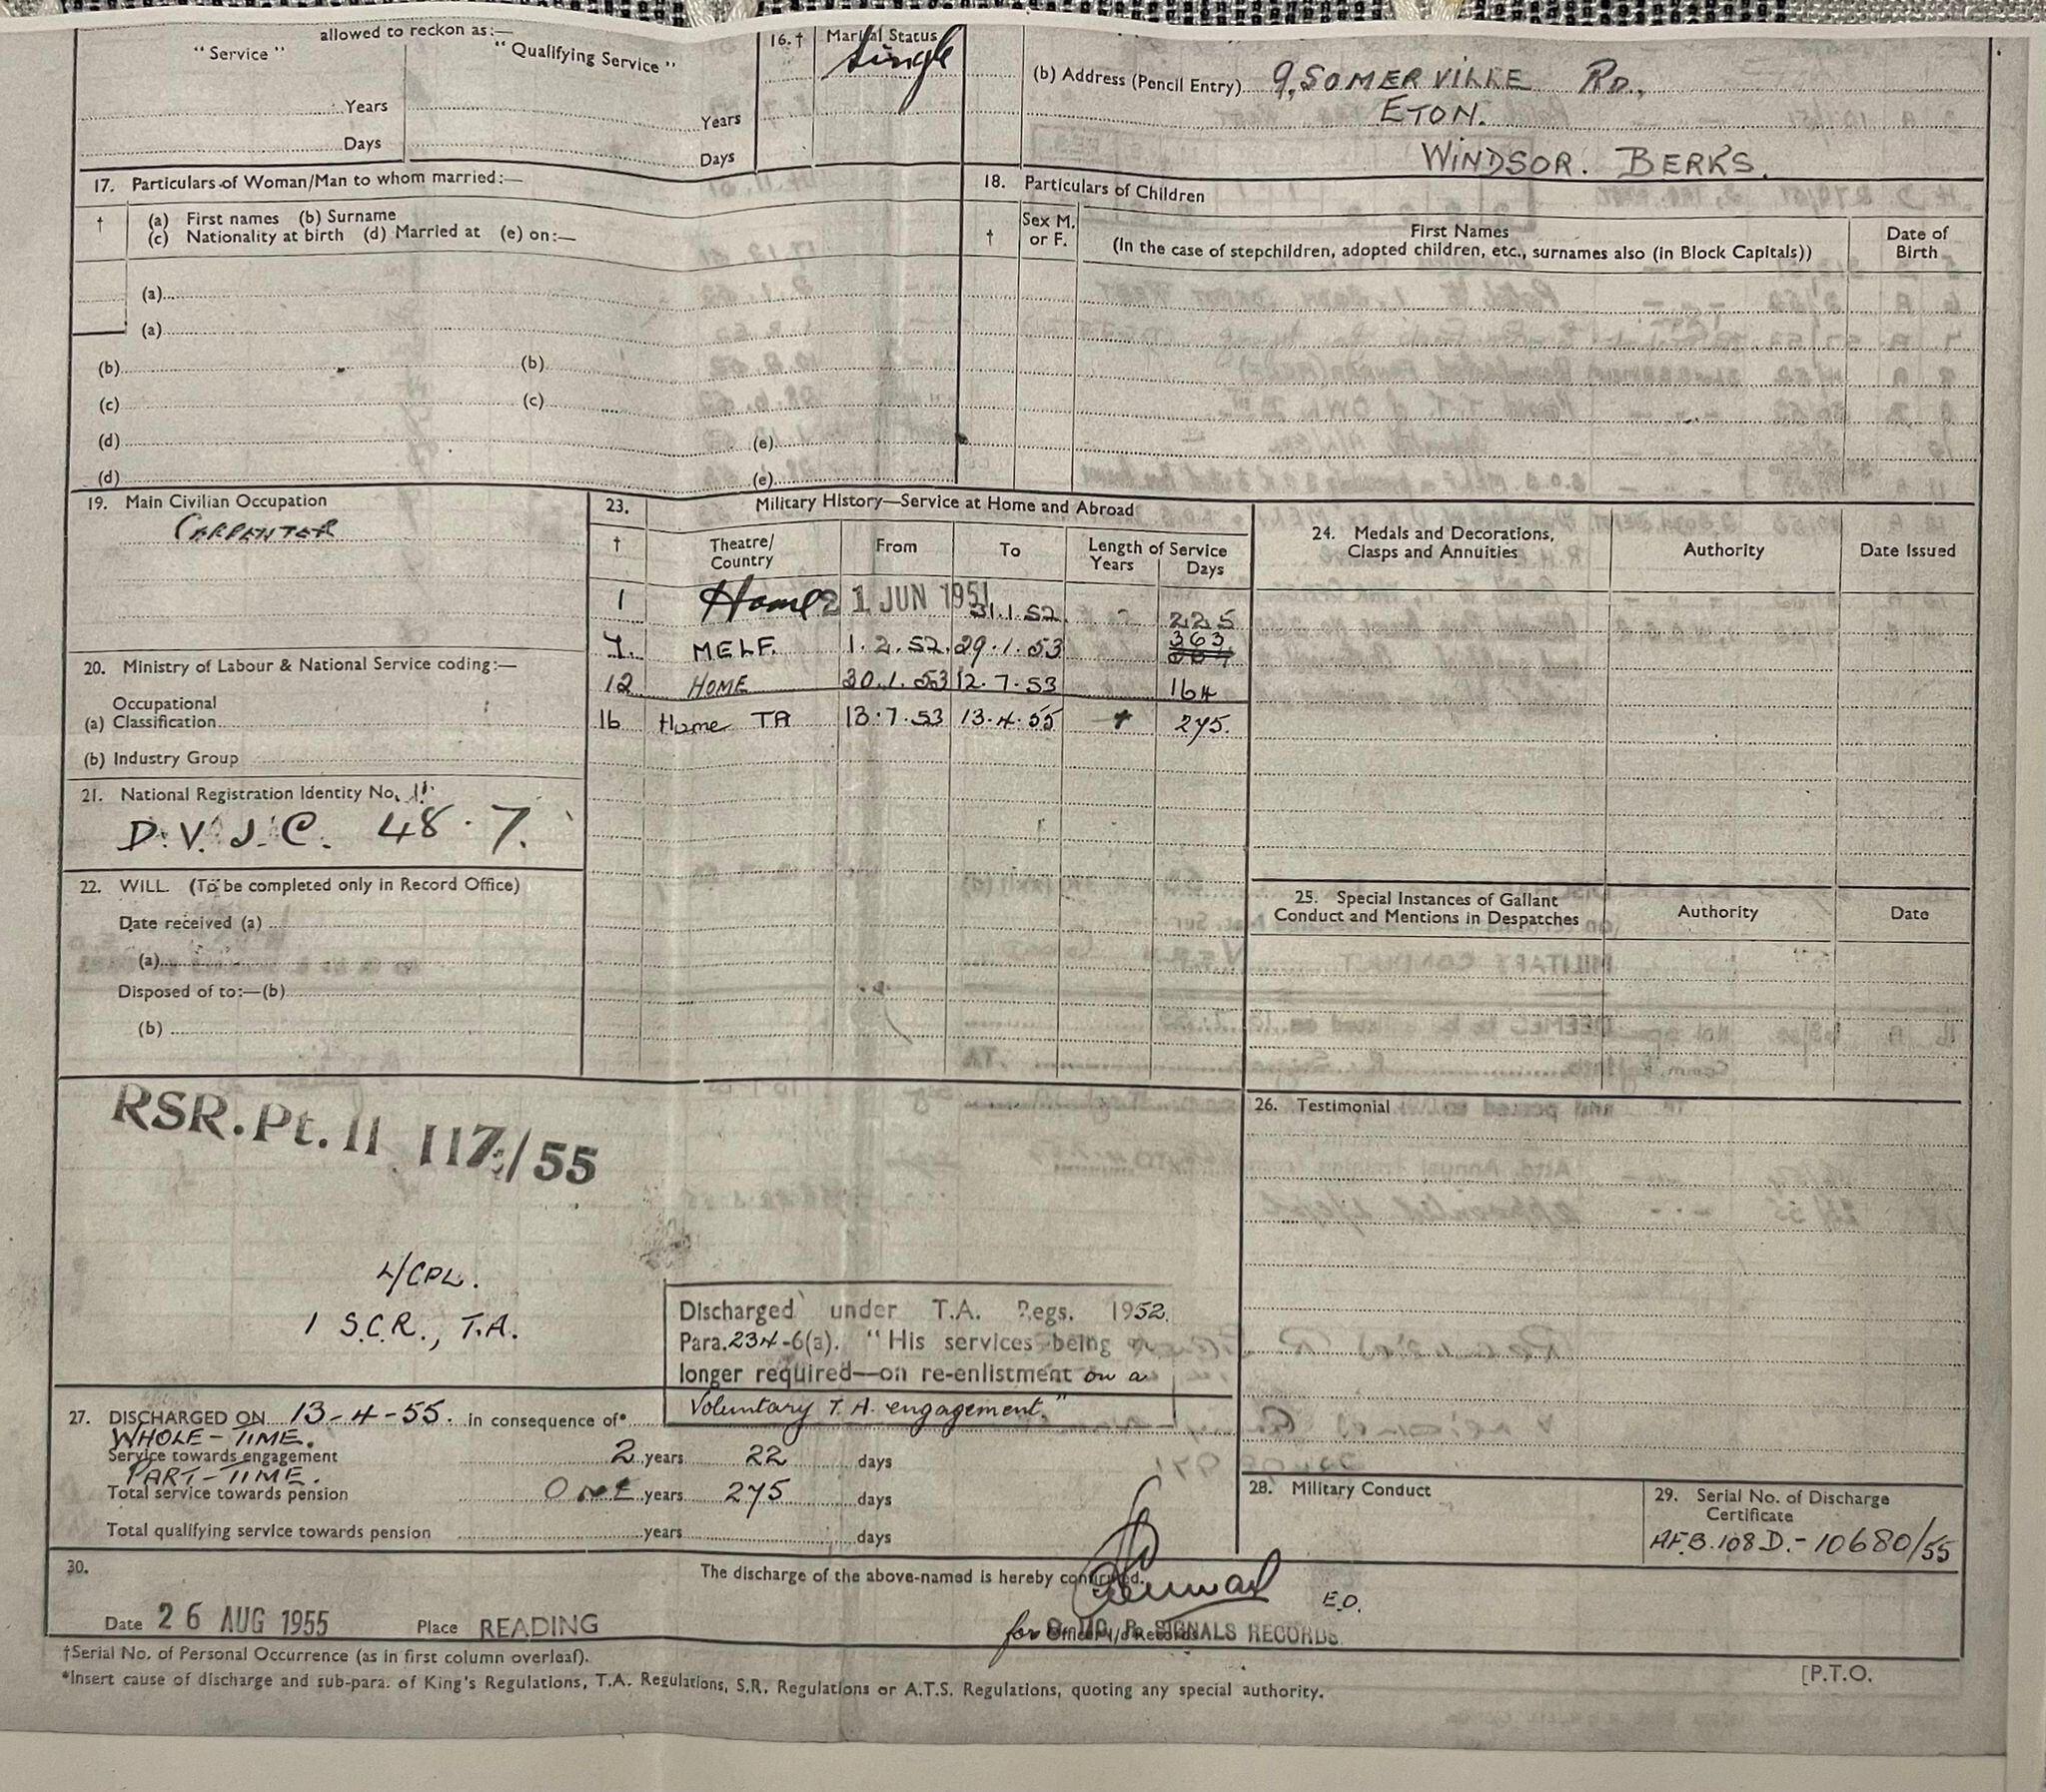 allowed to reckon as:—
"Service" "Qualifying Service"
Years Years
Days Days
16.† Marital Status
Single
(b) Address (Pencil Entry) 9, SOMERVILLE RD.,
ETON.
WINDSOR. BERKS.
17. Particulars of Woman/Man to whom married:—
† (a) First names (b) Surname
(c) Nationality at birth (d) Married at (e) on:—
(a)
(a)
(b) (b)
(c) (c)
(d) (e)
(d) (e)
18. Particulars of Children
† Sex M. or F. First Names Date of Birth
(In the case of stepchildren, adopted children, etc., surnames also (in Block Capitals))
19. Main Civilian Occupation
CARPENTER
20. Ministry of Labour & National Service coding:—
Occupational
(a) Classification
(b) Industry Group
21. National Registration Identity No.
D.V.J.C. 48.7.
22. WILL. (To be completed only in Record Office)
Date received (a)
(a)
Disposed of to:—(b)
(b)
23. Military History—Service at Home and Abroad
† Theatre/Country From To Length of Service
Years Days
1 Home 21 JUN 1951 31.1.52. 225
MELF. 1.2.52. 29.1.53 363
12 HOME 30.1.53 12.7.53 164
16 Home TA 13.7.53 13.4.55 275.
24. Medals and Decorations, Authority Date Issued
Clasps and Annuities
25. Special Instances of Gallant Authority Date
Conduct and Mentions in Despatches
RSR.Pt.II 117/55
L/CPL.
1 S.C.R., T.A.
Discharged under T.A. Regs. 1952.
Para.234-6(a). "His services being
longer required—on re-enlistment on a
Voluntary T.A. engagement."
26. Testimonial
27. DISCHARGED ON 13-4-55. in consequence of*
WHOLE-TIME.
Service towards engagement 2 years 22 days
PART-TIME.
Total service towards pension ONE years 275 days
Total qualifying service towards pension years days
28. Military Conduct
29. Serial No. of Discharge
Certificate
A.F.B.108D.-10680/55
30.
The discharge of the above-named is hereby confirmed.
E.D.
Date 26 AUG 1955 Place READING
for Officer i/c Records
R. SIGNALS RECORDS.
†Serial No. of Personal Occurrence (as in first column overleaf).
*Insert cause of discharge and sub-para. of King's Regulations, T.A. Regulations, S.R. Regulations or A.T.S. Regulations, quoting any special authority.
[P.T.O.